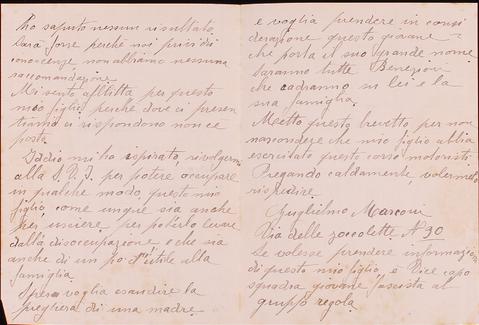 ho saputo nessun risultato,
Sarà forse perché noi privi di
conoscenze non abbiamo nessuna
raccomandazione.
Mi sento afflitta per questo
mio figlio, perché dove ci presen
tiamo ci rispondono non ce
posto.
Iddio mi ha ispirato, rivolgermi
alla S.V.I. per potere occupare
in qualche modo questo mio
figlio, come sia anche
per usciere. per poterlo levare
dalla disoccupazione e che sia
anche di un po' d'utile alla
famiglia
Spero voglia esaudire la
preghera di una madre
e voglia prendere in consi
derazione questo giovane
che porta il suo grande nome
Saranno tutte Benezioni
che cadranno su lei e la
sua famiglia.
Metto questo brevetto per non
nascondere che mio figlio abbia
esercitato questo corso motoristi.
Pregando caldamente volermelo
Guglielmo Marconi
Via delle zoccolette N° 30
Se volesse prendere informazioni
di questo mio figlio, è Vice capo
squadra giovane fascista al
gruppo regola